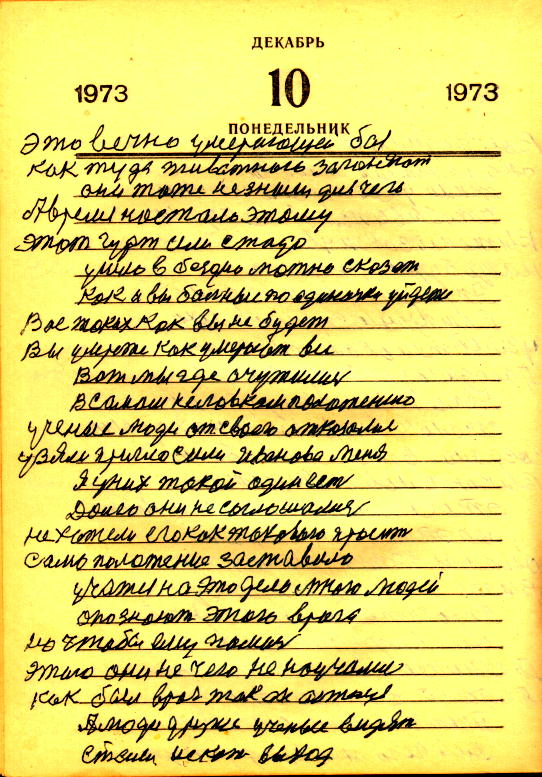 ДЕКАБРЬ
1973 10 1973
ПОНЕДЕЛЬНИК
Это вечно умирающей был
как туда животного загоняют
они тоже не знали для чего
А время настало этому
Этот гурт или стадо
ушло в бездну можно сказат
как и вы бывшие по одиночки уйдете
Вас таких как вы не будет
Вы умрете как умерает вси
Вот мы где очутились
В самом неловком положению
ученые люди от своего отказались
узяли пригласили Иванова меня
Я у них такой один ест
Долго они не соглошались
не хотели его как такового просит
Само положение заставило
учатся на это дело много людей
опознают этого врага
но чтобы ему
этого они не чего не научились
как был враг так и остался
А люди ученые видят
стали искат выход